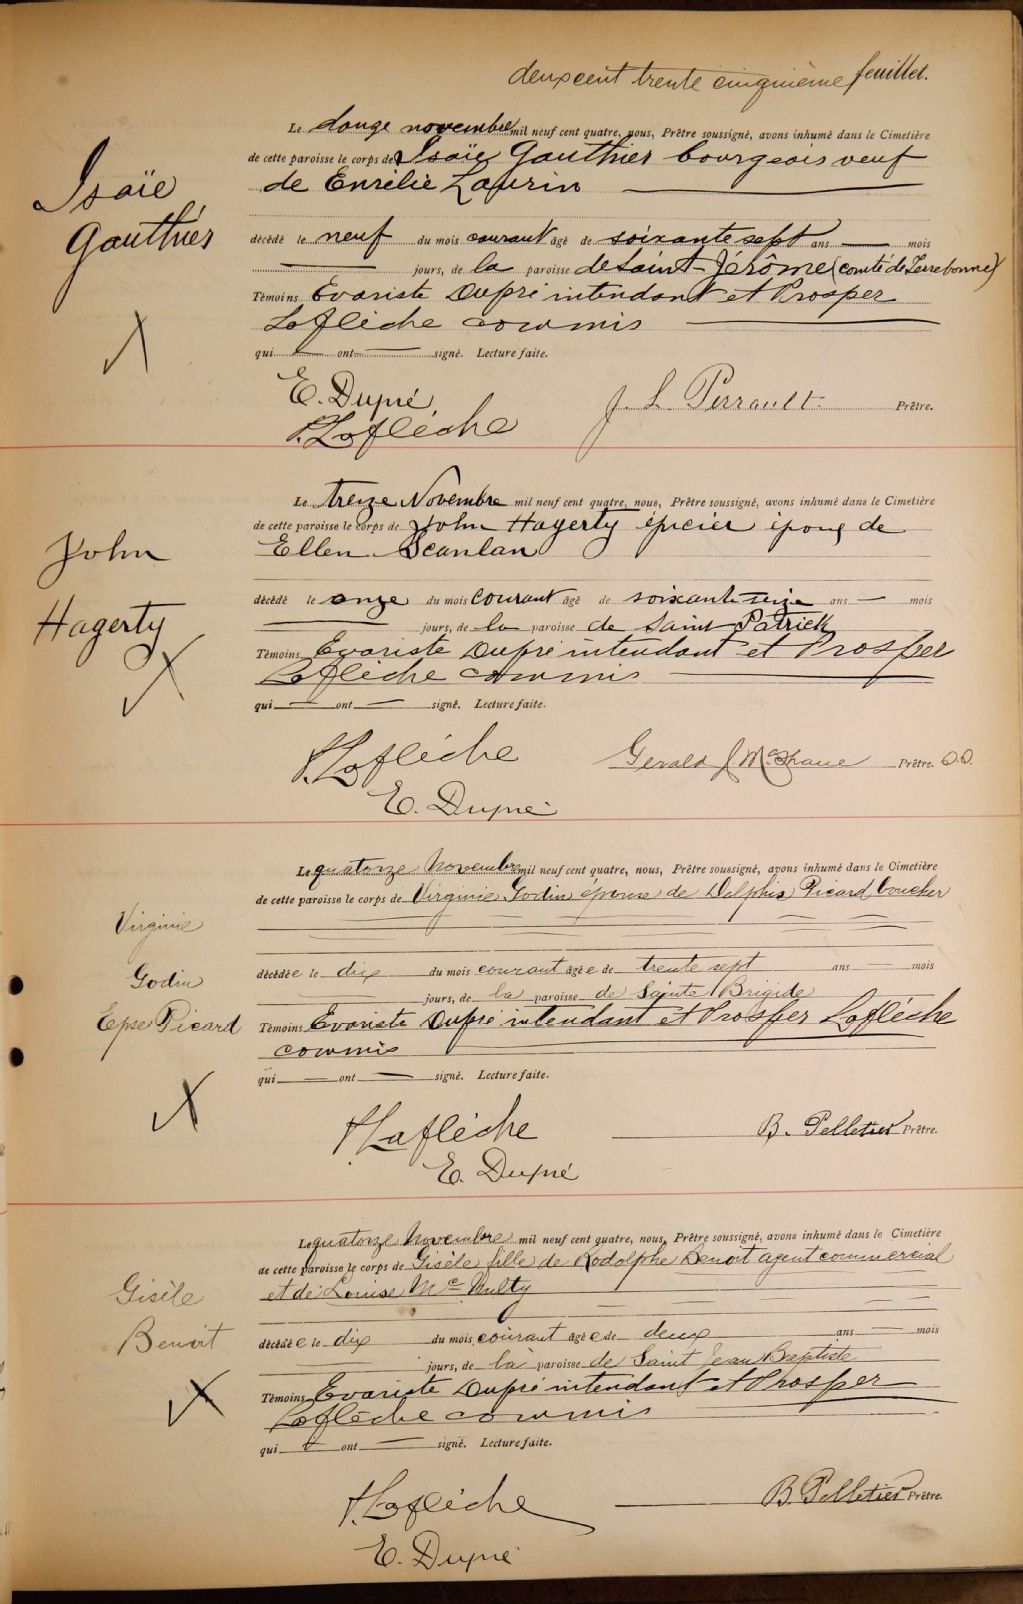 deux cent trente cinquième feuillet.
Le douze novembre mil neuf cent quatre, nous, Prêtre soussigné, avons inhumé dans le Cimetière
de cette paroisse le corps de Isaïe Gauthier bourgeois veuf
de Emélie Laurin
Isaïe
Gauthier
décédé le neuf du mois courant âgé de soixante sept ans — mois
— jours, de la paroisse de Saint-Jérôme (comté de Terrebonne)
Témoins Evariste Dupré intendant et Prosper
Laflèche commis
qui — ont — signé. Lecture faite.
E. Dupré
P. Laflèche
J. L. Perrault Prêtre.
Le treize Novembre mil neuf cent quatre, nous, Prêtre soussigné, avons inhumé dans le Cimetière
de cette paroisse le corps de John Hagerty épicier époux de
Ellen Scanlan
John
Hagerty
décédé le onze du mois courant âgé de soixante-seize ans — mois
— jours, de la paroisse de Saint Patrick
Témoins Evariste Dupré intendant et Prosper
Laflèche commis
qui — ont — signé. Lecture faite.
P. Laflèche
Gerald J McShane Prêtre. D.D.
E. Dupré
Le quatorze Novembre mil neuf cent quatre, nous, Prêtre soussigné, avons inhumé dans le Cimetière
de cette paroisse le corps de Virginie Godin épouse de Delphis Picard boucher
Virginie
Godin
Epse Picard
décédée le dix du mois courant âgée de trente sept ans — mois
— jours, de la paroisse de Sainte Brigide
Témoins Evariste Dupré intendant et Prosper Laflèche
commis
qui — ont — signé. Lecture faite.
P. Laflèche
B. Pelletier Prêtre.
E. Dupré
Le quatorze Novembre mil neuf cent quatre, nous, Prêtre soussigné, avons inhumé dans le Cimetière
de cette paroisse le corps de Gisèle fille de Rodolphe Benoit agent commercial
et de Louise Mc Nulty
Gisèle
Benoit
décédée le dix du mois courant âgée de deux ans — mois
— jours, de la paroisse de Saint Jean Baptiste
Témoins Evariste Dupré intendant et Prosper
Laflèche commis
qui — ont — signé. Lecture faite.
P. Laflèche
B. Pelletier Prêtre.
E. Dupré